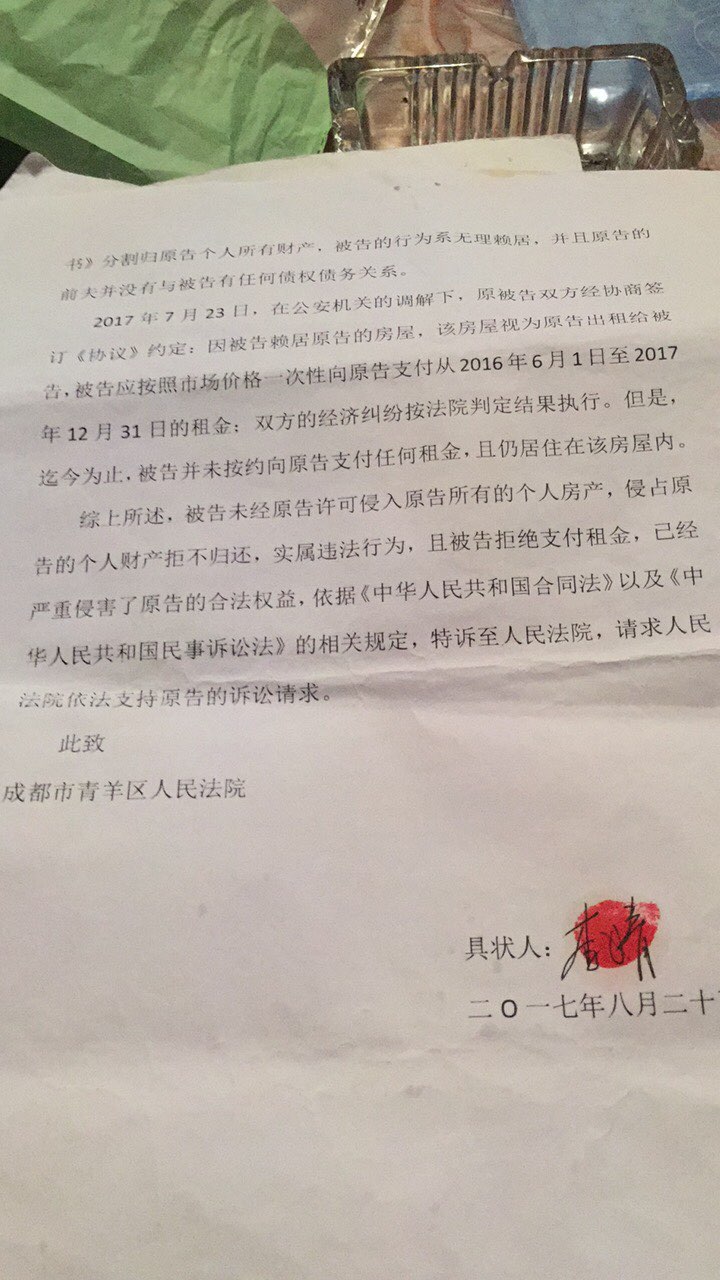 书》分割归原告个人所有财产，被告的行为系无理赖居，并且原告的
前夫并没有与被告有任何债权债务关系。
2017 年 7 月 23 日，在公安机关的调解下，原被告双方经协商签
订《协议》约定：因被告赖居原告的房屋，该房屋视为原告出租给被
告，被告应按照市场价格一次性向原告支付从 2016 年 6 月 1 日至 2017
年 12 月 31 日的租金；双方的经济纠纷按法院判定结果执行。但是，
迄今为止，被告并未按约向原告支付任何租金，且仍居住在该房屋内。
综上所述，被告未经原告许可侵入原告所有的个人房产，侵占原
告的个人财产拒不归还，实属违法行为，且被告拒绝支付租金，已经
严重侵害了原告的合法权益，依据《中华人民共和国合同法》以及《中
华人民共和国民事诉讼法》的相关规定，特诉至人民法院，请求人民
法院依法支持原告的诉讼请求。
此致
成都市青羊区人民法院
具状人：
二 O 一七年八月二十